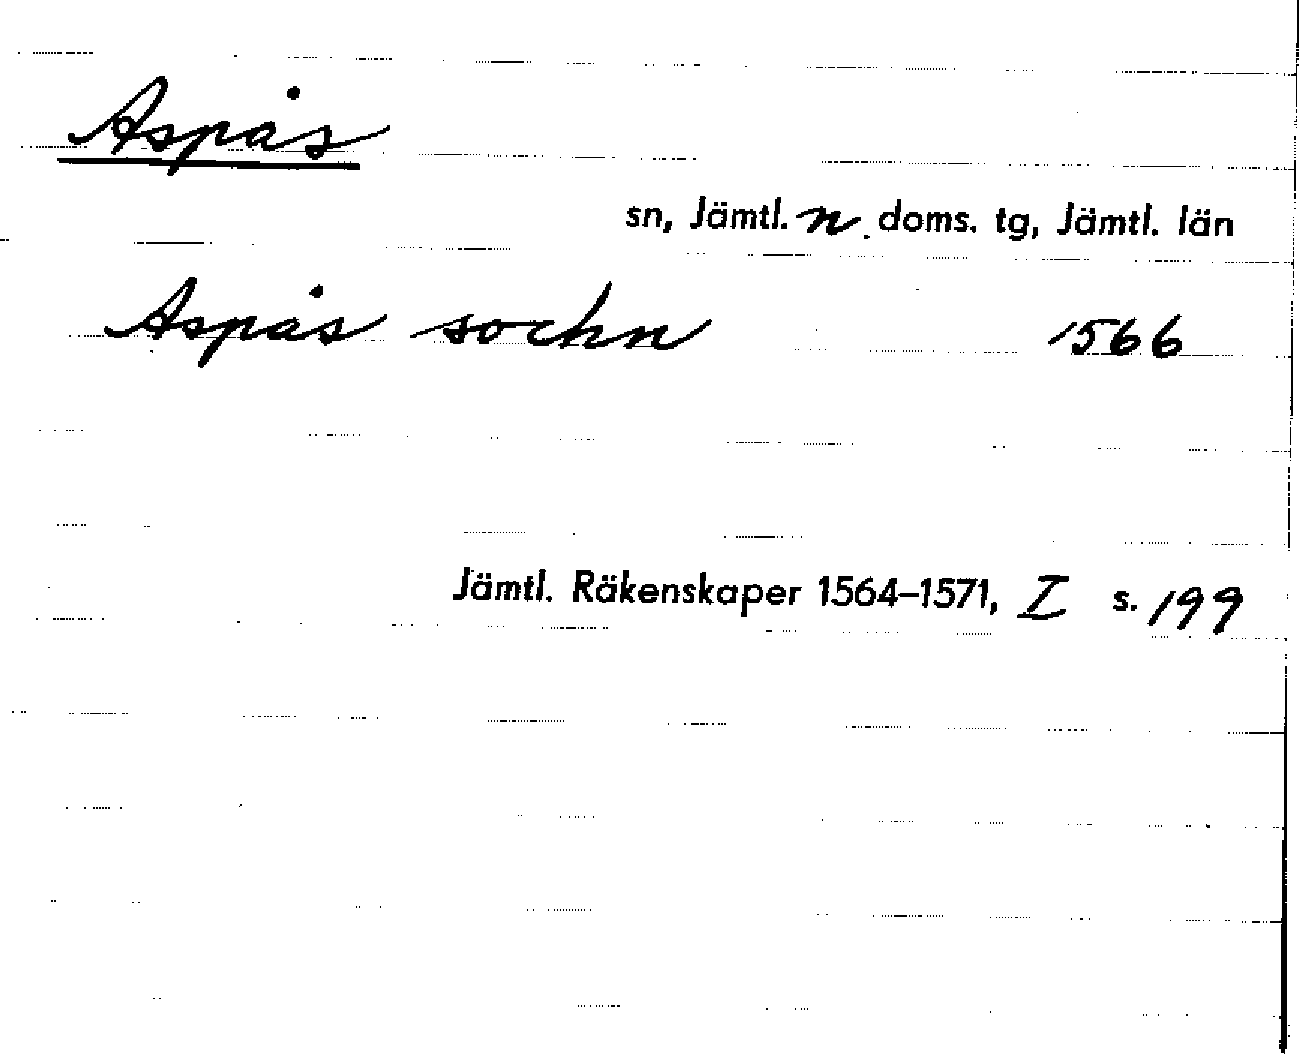 Aspås
sn, Jämtl. n. doms. tg, Jämtl. län
Aspås sockn 1566
Jämtl. Räkenskaper 1564–1571, I s. 199